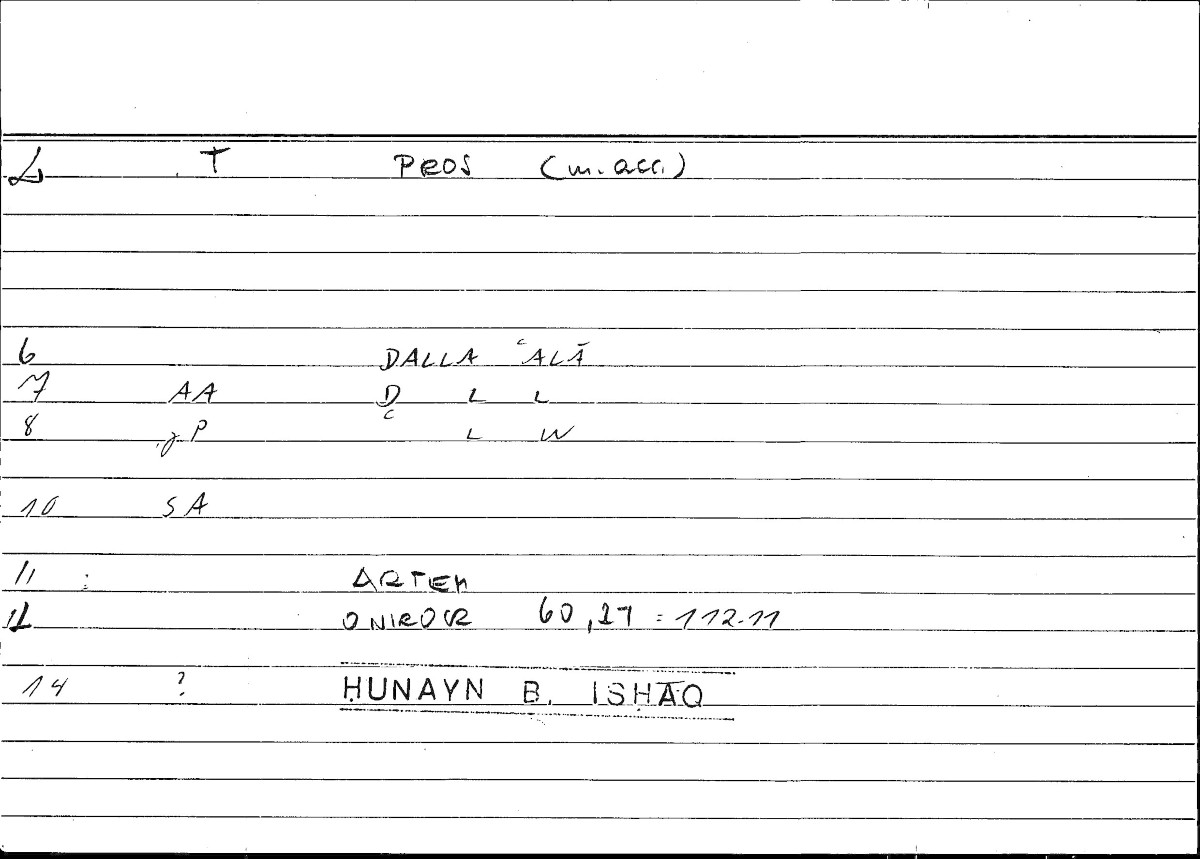 T PROS (m. acc.)
6 DALLA ʿALĀ
7 AA D L L
8 gP ʿ L W
10 SA
11 : ARTEM
12 ONIROCR 60,17 = 112.11
14 ? ḤUNAYN B. ISḤĀQ